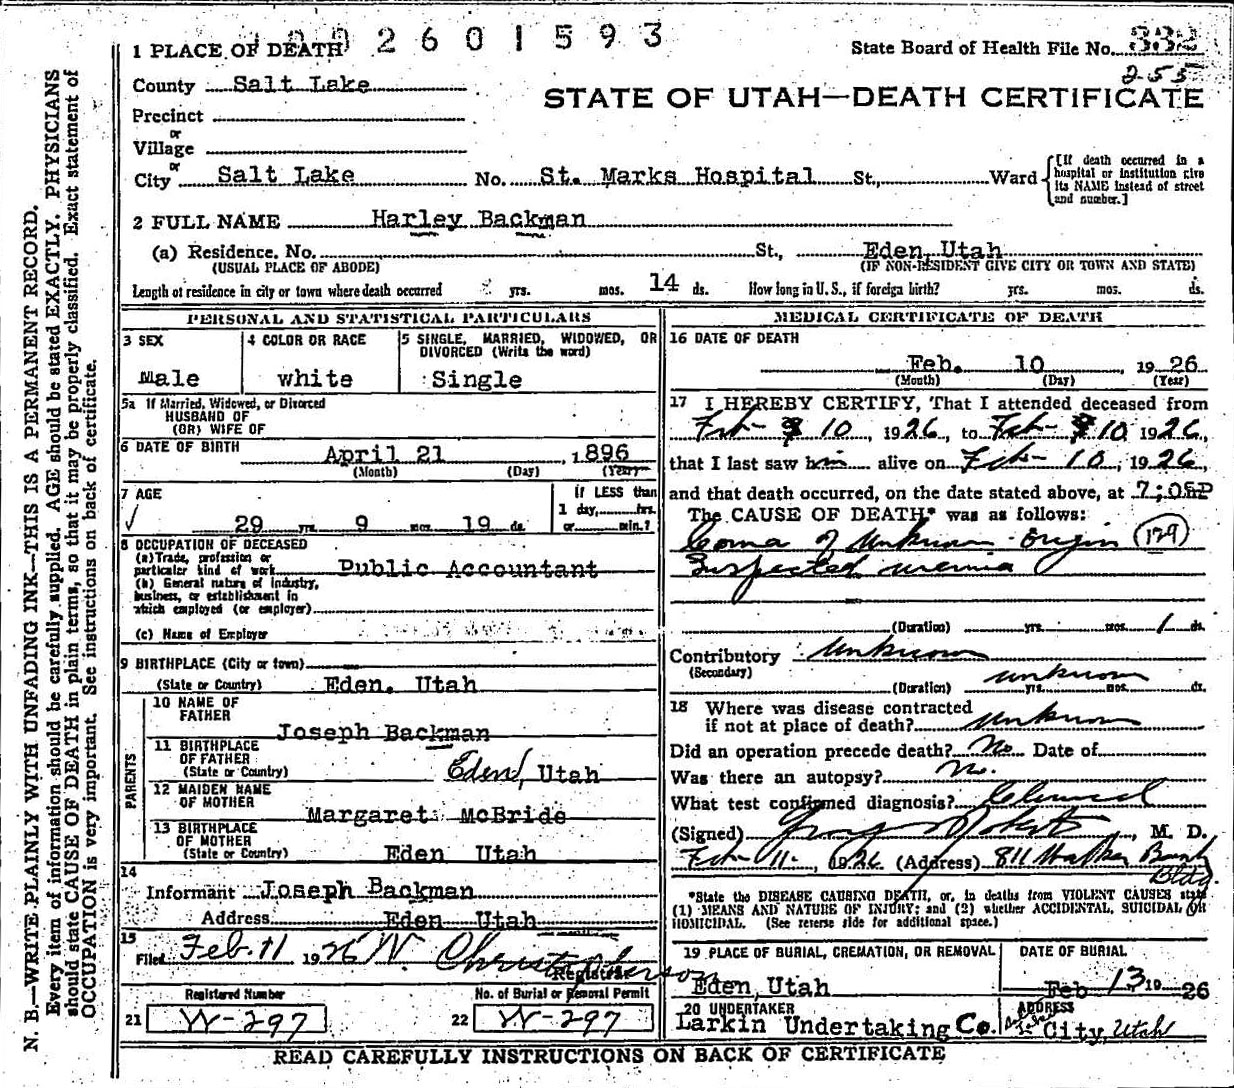 N. B.—WRITE PLAINLY WITH UNFADING INK—THIS IS A PERMANENT RECORD.
Every item of information should be carefully supplied. AGE should be stated EXACTLY. PHYSICIANS
should state CAUSE OF DEATH in plain terms, so that it may be properly classified. Exact statement of
OCCUPATION is very important. See instructions on back of certificate.
2601593
1 PLACE OF DEATH
State Board of Health File No. 332
255
County Salt Lake
STATE OF UTAH—DEATH CERTIFICATE
Precinct
or
Village
or
City Salt Lake No. St. Marks Hospital St., Ward
[If death occurred in a
hospital or institution give
its NAME instead of street
and number.]
2 FULL NAME Harley Backman
(a) Residence. No. St., Eden, Utah
(USUAL PLACE OF ABODE) (IF NON-RESIDENT GIVE CITY OR TOWN AND STATE)
Length of residence in city or town where death occurred yrs. mos. 14 ds. How long in U. S., if foreign birth? yrs. mos. ds.
PERSONAL AND STATISTICAL PARTICULARS
3 SEX
Male
4 COLOR OR RACE
white
5 SINGLE, MARRIED, WIDOWED, OR
DIVORCED (Write the word)
Single
5a If Married, Widowed, or Divorced
HUSBAND OF
(OR) WIFE OF
6 DATE OF BIRTH
April 21, 1896
(Month) (Day) (Year)
7 AGE
29 yrs. 9 mos. 19 ds.
If LESS than
1 day, hrs.
or min.?
8 OCCUPATION OF DECEASED
(a) Trade, profession or
particular kind of work Public Accountant
(b) General nature of industry,
business, or establishment in
which employed (or employer)
(c) Name of Employer
9 BIRTHPLACE (City or town)
(State or Country) Eden, Utah
PARENTS
10 NAME OF
FATHER
Joseph Backman
11 BIRTHPLACE
OF FATHER
(State or Country) Eden, Utah
12 MAIDEN NAME
OF MOTHER
Margaret McBride
13 BIRTHPLACE
OF MOTHER
(State or Country) Eden Utah
14
Informant Joseph Backman
Address Eden Utah
15
Filed Feb. 11 1926 W. Christopherson
Registrar
Registered Number
21 W-297
No. of Burial or Removal Permit
22 W-297
MEDICAL CERTIFICATE OF DEATH
16 DATE OF DEATH
Feb. 10 1926
(Month) (Day) (Year)
17 I HEREBY CERTIFY, That I attended deceased from
Feb- 10, 1926, to Feb- 10 1926,
that I last saw him alive on Feb- 10, 1926,
and that death occurred, on the date stated above, at 7:05P
The CAUSE OF DEATH* was as follows:
Coma of Unknown Origin (129)
Suspected uremia
(Duration) yrs. mos. 1 ds.
Contributory Unknown
(Secondary) unknown
(Duration) yrs. mos. ds.
18 Where was disease contracted
if not at place of death? Unknown
Did an operation precede death? No Date of
Was there an autopsy? No.
What test confirmed diagnosis? Clinical
(Signed) M. D.
Feb- 11-, 1926 (Address) 811 Walker Bank
Bldg.
*State the DISEASE CAUSING DEATH, or, in deaths from VIOLENT CAUSES state
(1) MEANS AND NATURE OF INJURY; and (2) whether ACCIDENTAL, SUICIDAL OR
HOMICIDAL. (See reverse side for additional space.)
19 PLACE OF BURIAL, CREMATION, OR REMOVAL
Eden, Utah
DATE OF BURIAL
Feb 13 1926
20 UNDERTAKER
Larkin Undertaking Co.
ADDRESS
City, Utah
READ CAREFULLY INSTRUCTIONS ON BACK OF CERTIFICATE